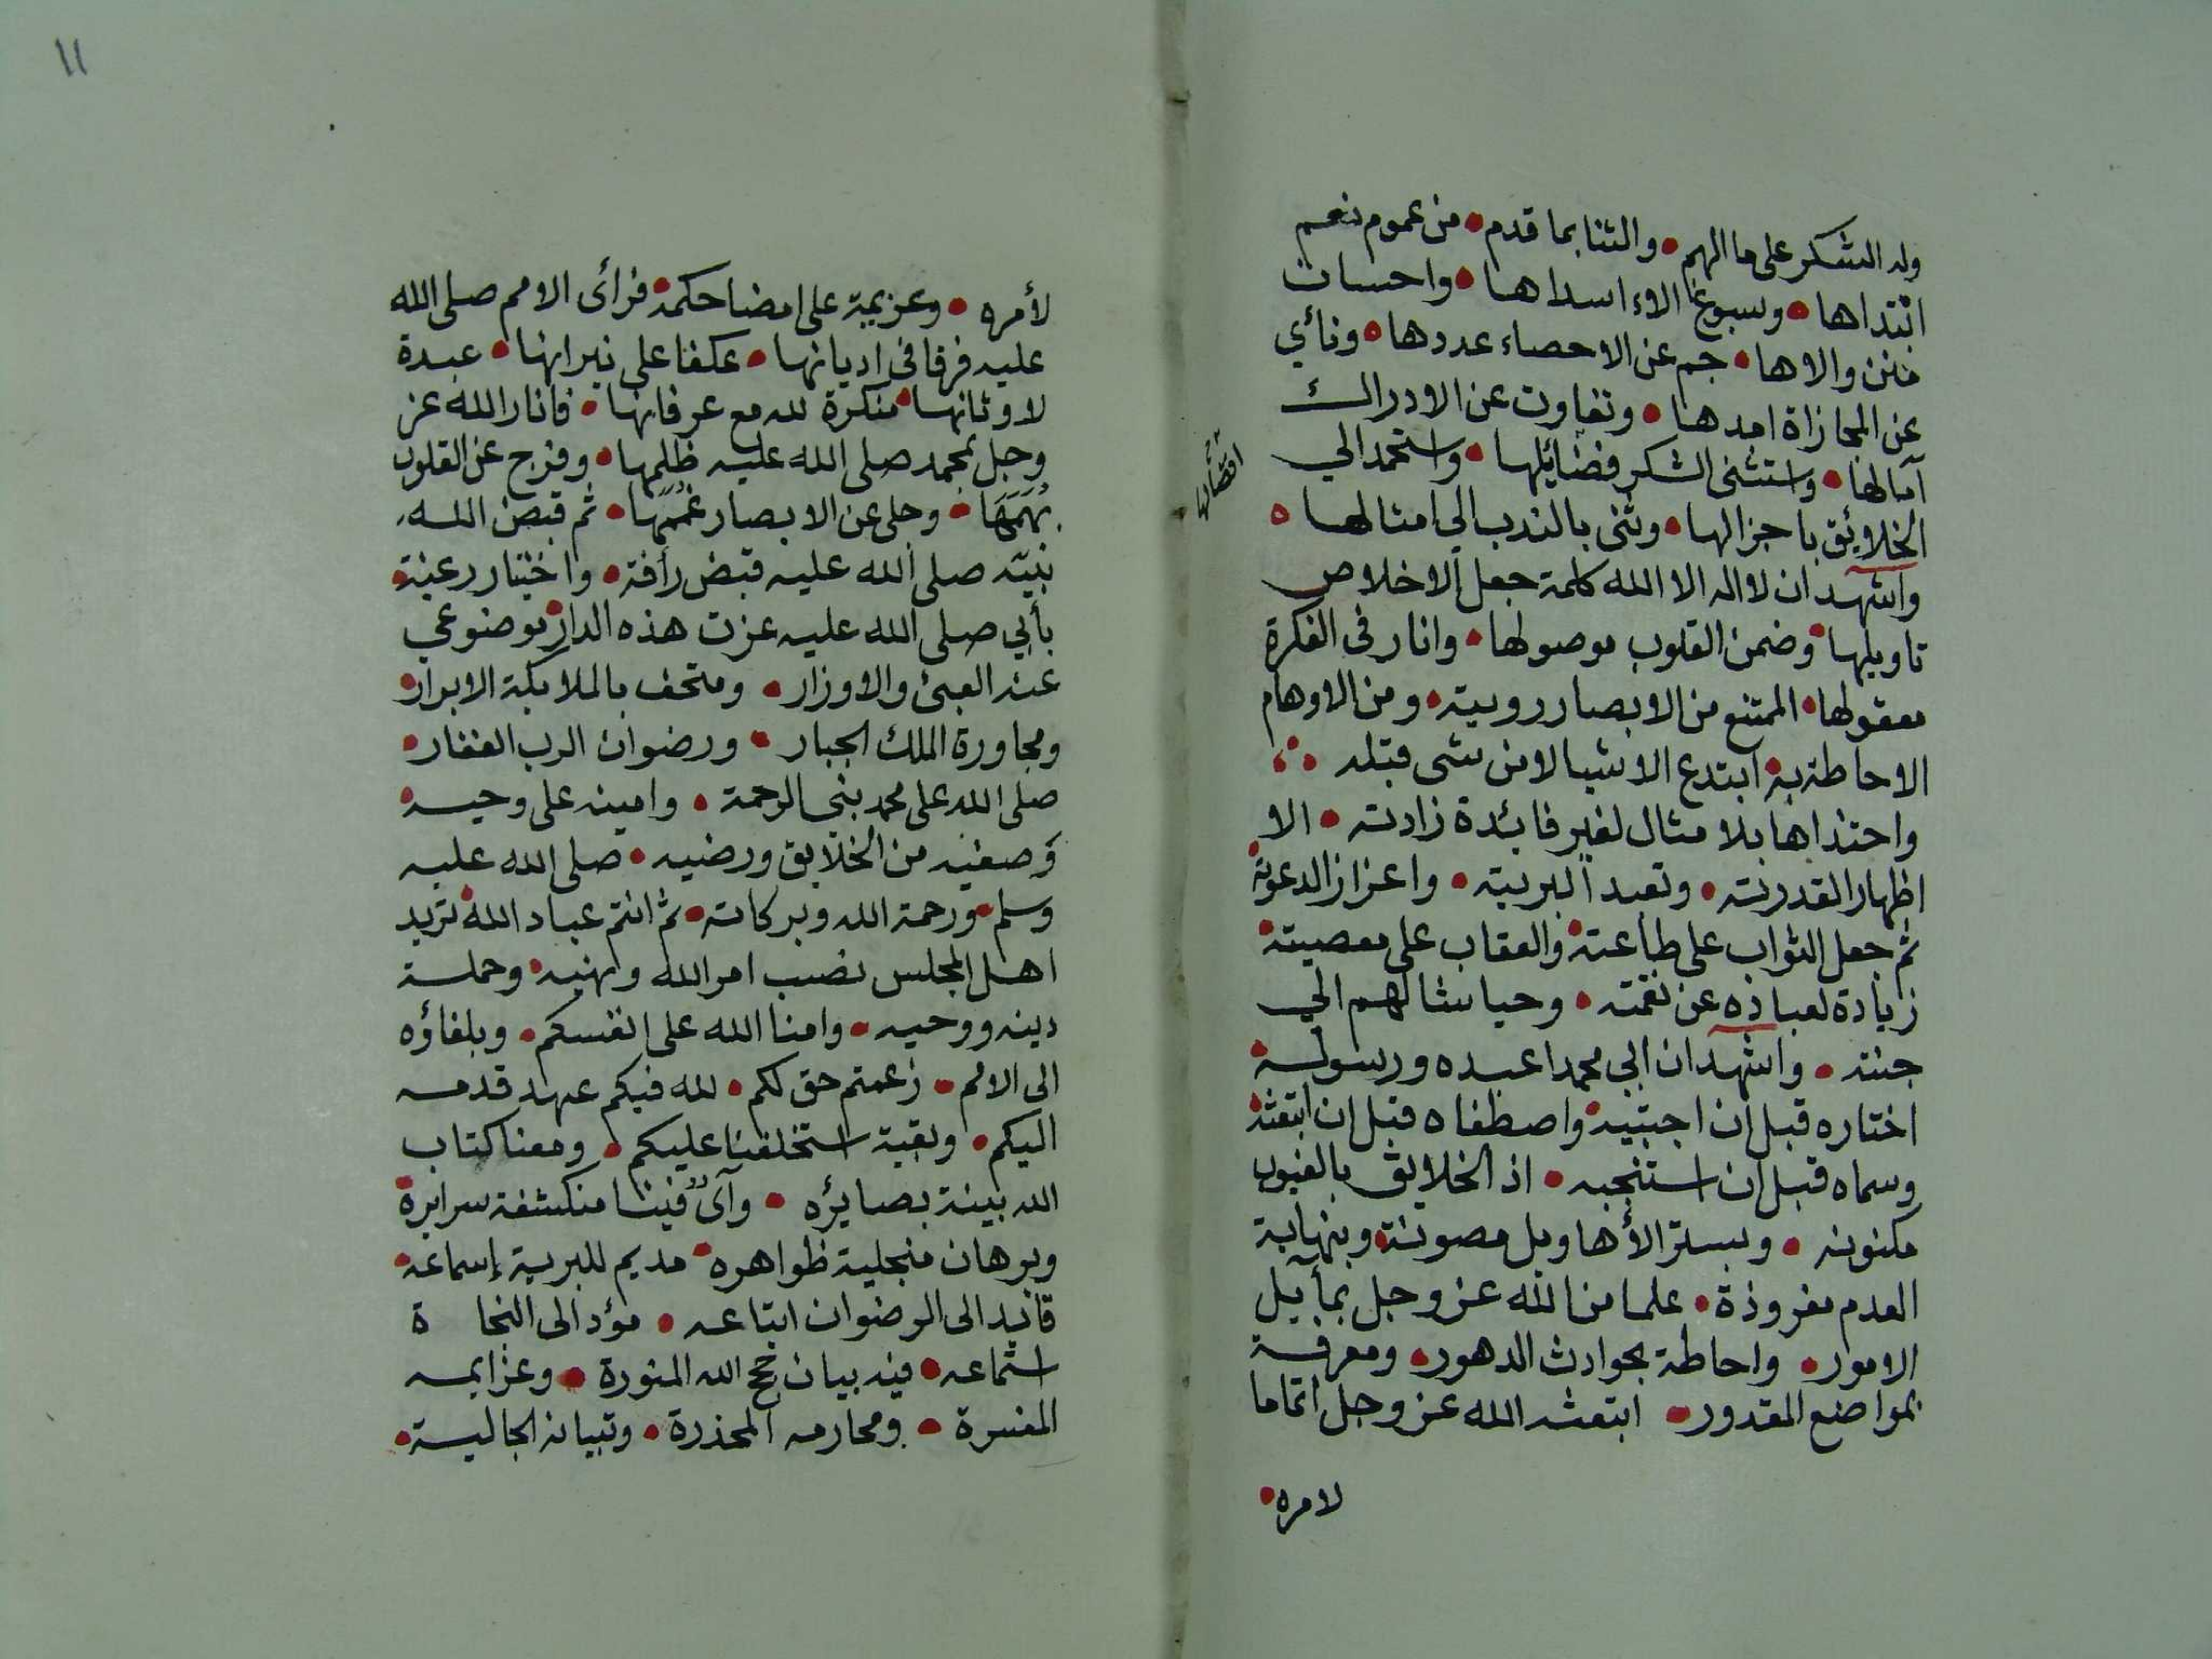 وله الشكر على ما الهم • والثنا بما قدم • من عموم نعم
ابتداها • وسبوغ الاء اسداها • واحسان
منن والاها • جم عن الاحصاء عددها • ونأي
عن المجازاة امدها • وتفاوت عن الادراك
آمالها • واستثنى الشكر فضائلها • واستحمد الي
الخلايئق باجزالها • وثنى بالندب الي امثالها •
واشهد ان لا اله الا الله كلمة جعل الاخلاص
تاويلها • وضمن القلوب موصولها • وانار في الفكرة
معقولها • الممتنع من الابصار رويته • ومن الاوهام
الاحاطة به • ابتدع الاشيا لا من شى قبله
واحتذاها بلا مثال لغير فائدة زادته • الا
اظهار القدرته • وتعبد البريته • واعزاز الدعوته
ثم جعل الثواب على طاعته • والعقاب على معصيته •
زيادة لعباده عن نقمته • وحياشا لهم الي
جنته • واشهد ان ابي محمدا عبده ورسوله •
اختاره قبل ان اجتبيه • واصطفاه قبل ان ابتعثه •
وسماه قبل ان استنجبه • اذ الخلايق بالغيوب
مكنونه • وبستر الأهاويل مصونة • وبنهاية
العدم مقروذة • علما من الله عز وجل بمأيل
الامور • واحاطة بحوادث الدهور • ومعرفة
بمواضع المقدور • ابتعثه الله عز وجل اتماما
لامره •
١١
لأمره • وعزيمة على امضا حكمه • فرأى الامم صلى الله
عليه فرقا في اديانها • عكفا على نيرانها • عبدة
لاوثانها • منكرة لله مع عرفانها • فانار الله عز
وجل بمحمد صلى الله عليه ظلمها • وفرج عن القلوب
بُهَمَهَا • وجلى عن الابصار غُمَمَها • ثم قبض الله
نبيّه صلى الله عليه قبض رأفة • واختيار رغبة •
بأبي صلى الله عليه عزت هذه الدار • موضوع عي
عنه العبئ والاوزار • ومتحف بالملايكة الابرار •
ومجاورة الملك الجبار • ورضوان الرب الغفار •
صلى الله على محمد نبي الرحمة • وامينه على وحيه •
وصفيه من الخلايق ورضيه • صلى الله عليه
وسلم • ورحمة الله وبركاته • ثم انتم عباد الله • تريد
اهل المجلس نصب امر الله ونهيه • وحملة
دينه ووحيه • وامنا الله على انفسكم • وبلغاؤه
الى الامم • زعمتم حق لكم • لله فيكم عهد قدمه
اليكم • وبقية استخلفنا عليكم • ومعنا كتاب
الله بينة بصايئره • وآى فينا منكشفة سرايره •
وبرهان منجلية ظواهره • مديم للبرية إسماعه •
قائد الى الرضوان اتباعه • مؤد الى النجاة
استماعه • فيه بيان حجج الله المنورة • وعزايمه
المفسرة • ومحارمه المحذرة • وتبيانه الجالية •